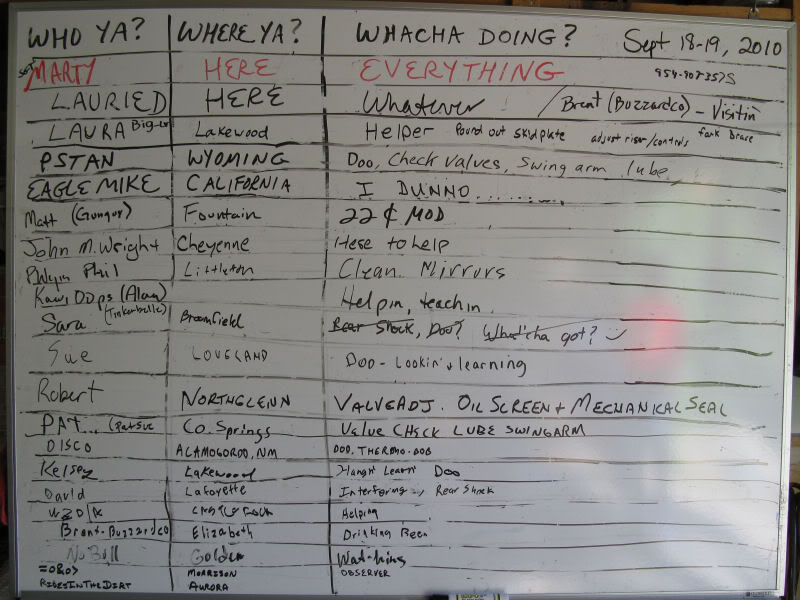 WHO YA? WHERE YA? WHACHA DOING? Sept 18-19, 2010
MARTY HERE EVERYTHING
LAURIED HERE Whatever / Brent (Buzzardco) - Visitin
LAURA Lakewood Helper Pound out skidplate adjust riser/controls
PSTAN WYOMING Doo, Check Valves, Swing arm lube
EAGLE MIKE CALIFORNIA I DUNNO..........
Matt Fountain 22¢ MOD
John M. Wright Cheyenne Here to help
Phil Littleton Clean Mirrors
(Alan) Helpin, teachin.
Sara (Tinkerbelle) Broomfield Rear Shock, Doo? What'cha got?
Sue LOVELAND Doo - Lookin' & learning
Robert NORTHGLENN VALVE ADJ. OIL SCREEN + MECHANICAL SEAL
PAT... Co. Springs Valve CHECK LUBE SWINGARM
DISCO ALAMOGORDO, NM DOO. THERMO-BOB
Kelsey Lakewood Hangn' Learn' Doo
David Lafayette Interfering Rear Shock
Helping
Brent-Buzzardco Elizabeth Drinking Beer
No Bull Golden Watching
=0&0> MORRISON OBSERVER
RIDESINTHEDIRT AURORA